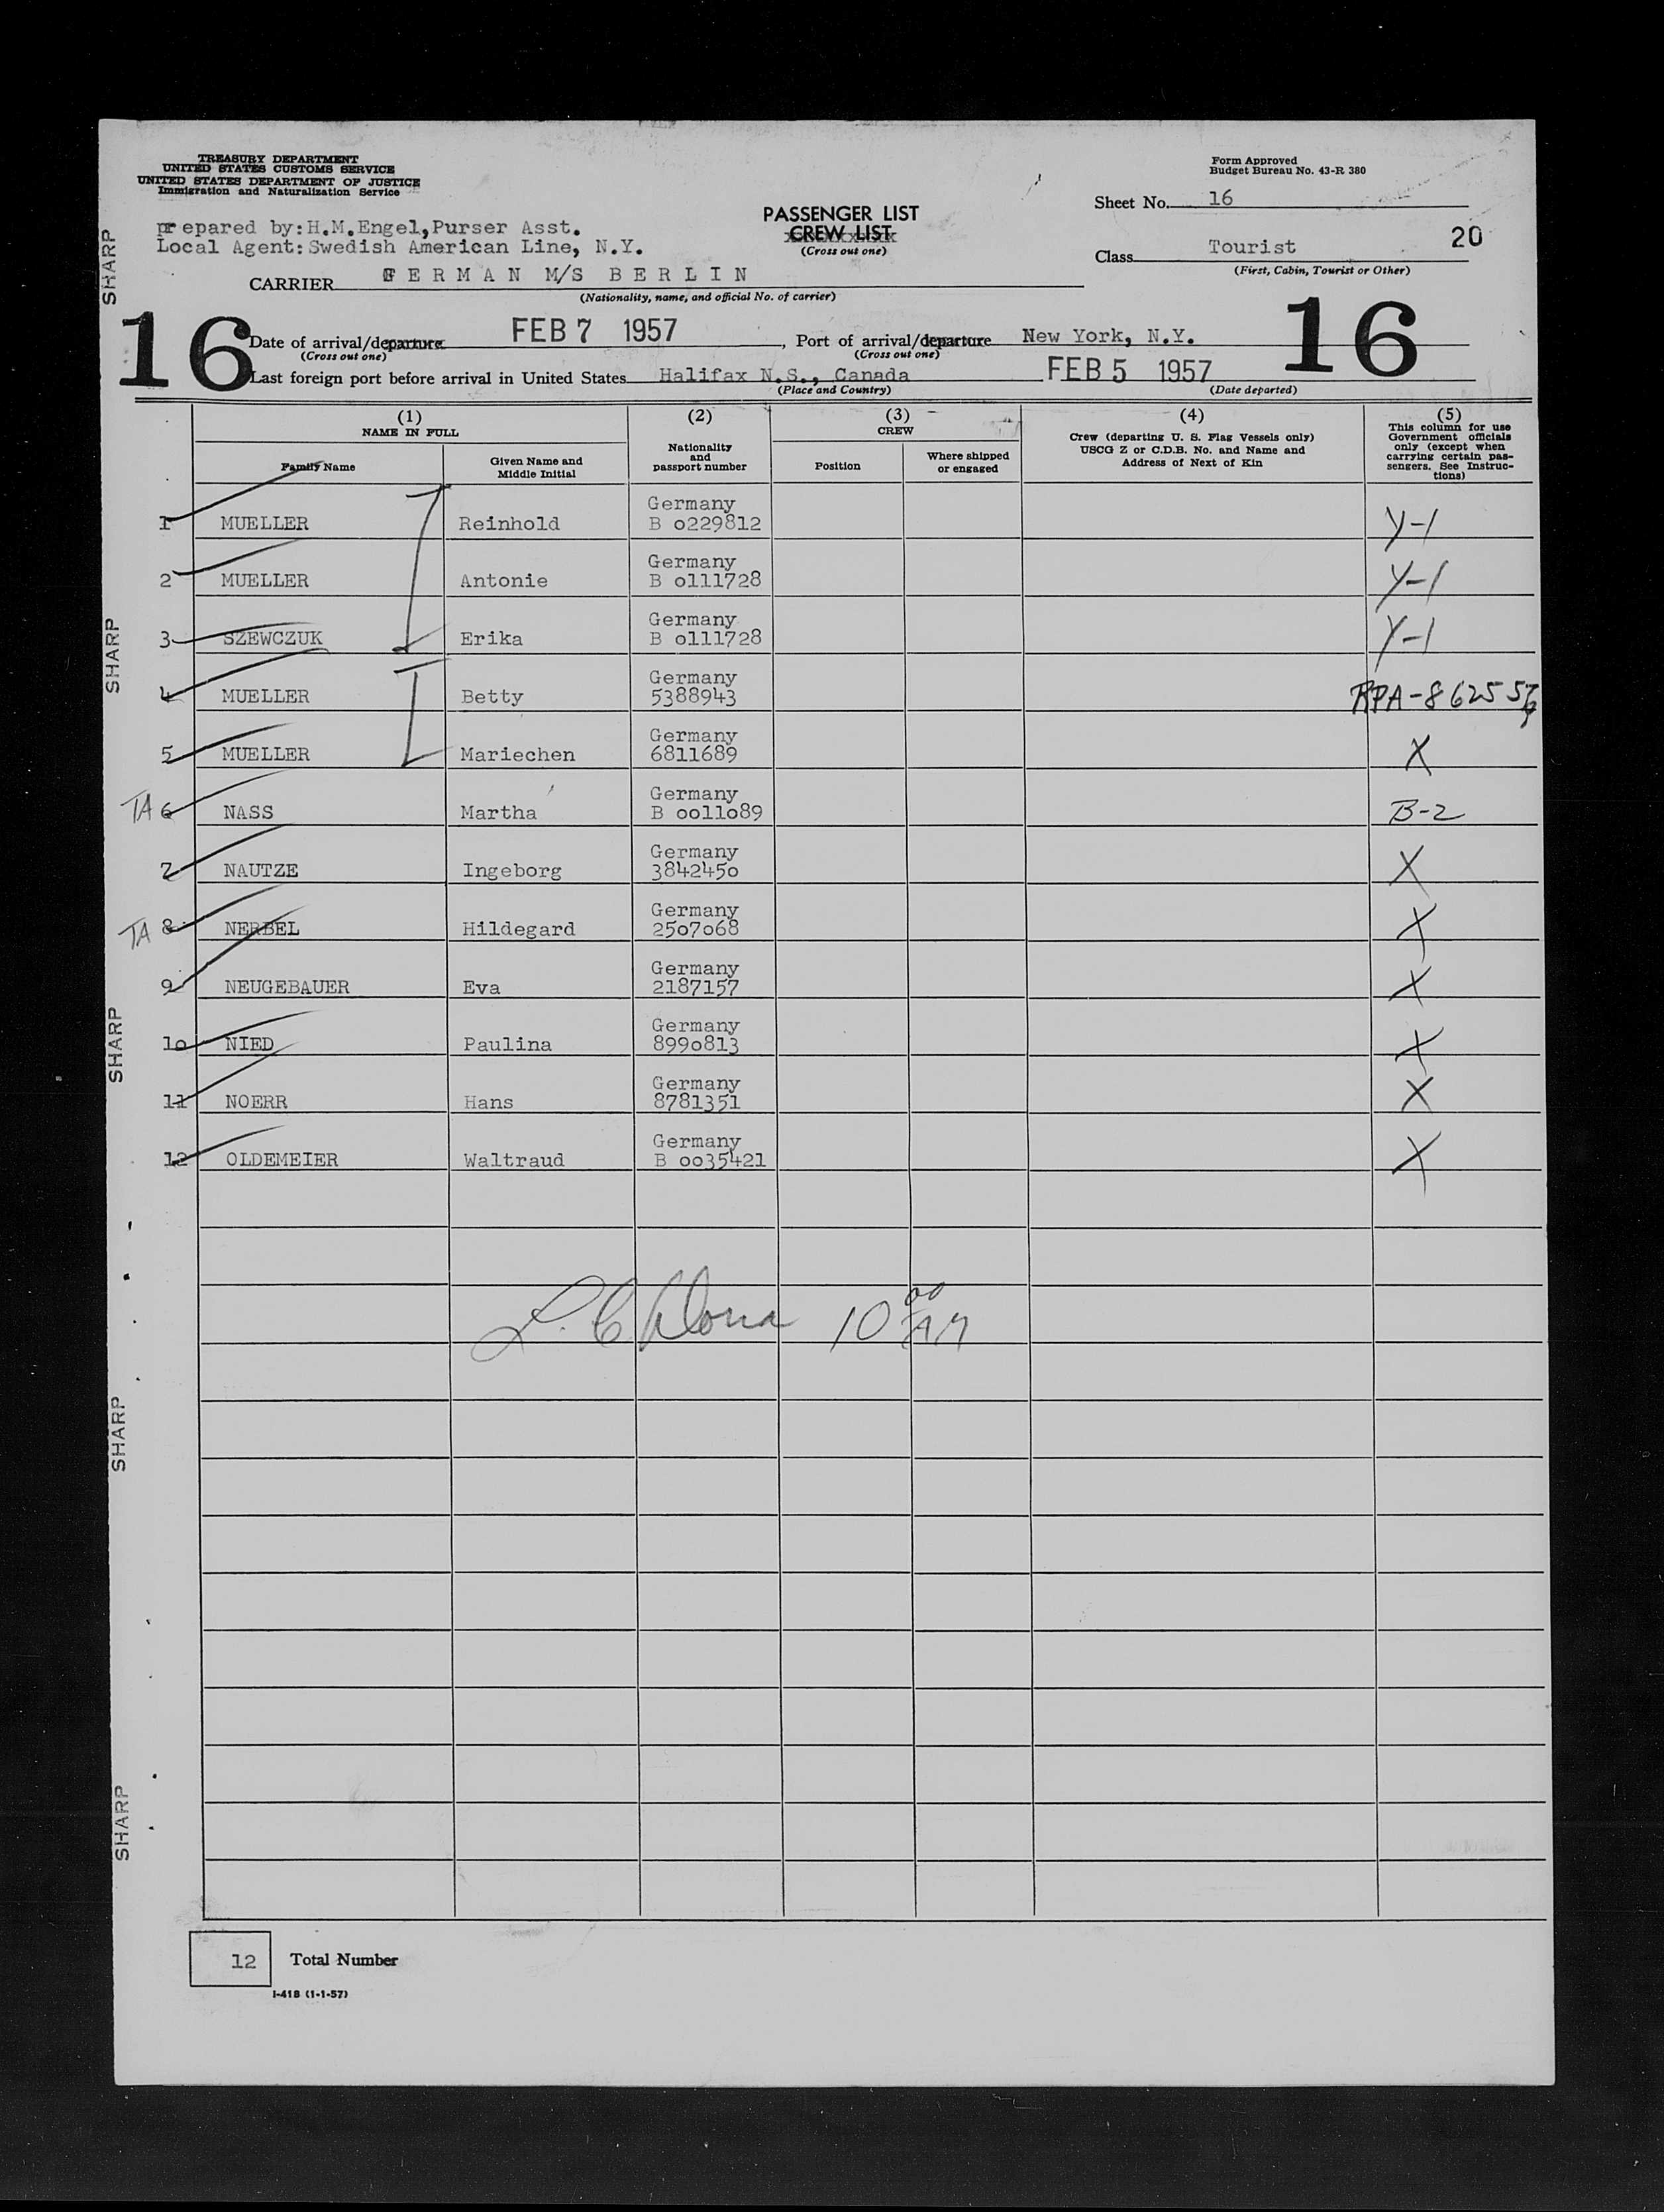 TREASURY DEPARTMENT
UNITED STATES CUSTOMS SERVICE
UNITED STATES DEPARTMENT OF JUSTICE
Immigration and Naturalization Service
Form Approved
Budget Bureau No. 43-R 380
Sheet No. 16
prepared by:H.M.Engel,Purser Asst.
Local Agent:Swedish American Line, N.Y.
PASSENGER LIST
CREW LIST
(Cross out one)
Class Tourist
20
(First, Cabin, Tourist or Other)
CARRIER GERMAN M/S BERLIN
(Nationality, name, and official No. of carrier)
16
Date of arrival/departure FEB 7 1957, Port of arrival/departure New York, N.Y.
16
(Cross out one)
(Cross out one)
Last foreign port before arrival in United States Halifax N.S., Canada FEB 5 1957
(Place and Country)
(Date departed)
(1)
NAME IN FULL
Family Name
Given Name and
Middle Initial
(2)
Nationality
and
passport number
(3)
CREW
Position
Where shipped
or engaged
(4)
Crew (departing U. S. Flag Vessels only)
USCG Z or C.D.B. No. and Name and
Address of Next of Kin
(5)
This column for use
Government officials
only (except when
carrying certain pas-
sengers. See Instruc-
tions)
Germany
1 MUELLER Reinhold B o229812 Y-1
Germany
2 MUELLER Antonie B o111728 Y-1
Germany
3 SZEWCZUK Erika B o111728 Y-1
Germany
4 MUELLER Betty 5388943 RPA-
Germany
5 MUELLER Mariechen 6811689 X
Germany
TA 6 NASS Martha B oo11o89 B-2
Germany
7 NAUTZE Ingeborg 384245o X
Germany
TA 8 NERBEL Hildegard 25o7o68 X
Germany
9 NEUGEBAUER Eva 2187157 X
Germany
1o NIED Paulina 899o813 X
Germany
11 NOERR Hans 8781351 X
Germany
12 OLDEMEIER Waltraud B oo35421 X
10 00 AM
12 Total Number
I-418 (1-1-57)
SHARP
SHARP
SHARP
SHARP
SHARP